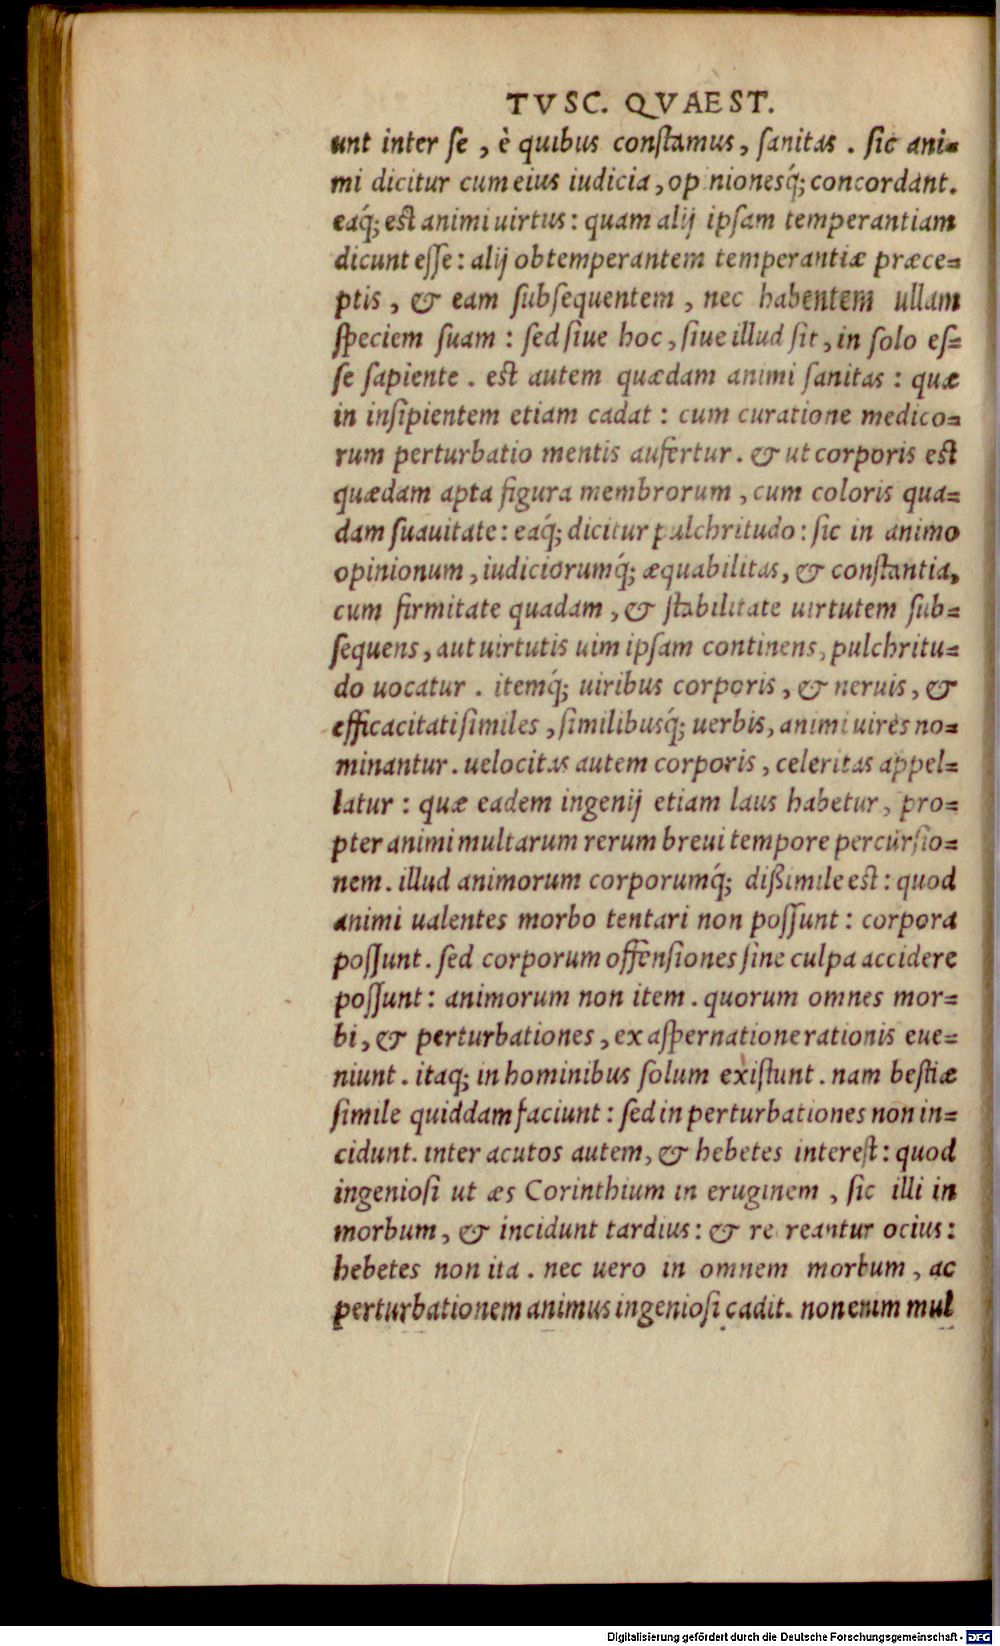 TVSC. QVAEST.
unt inter se, è quibus constamus, sanitas. sic ani=
mi dicitur cum eius iudicia, opinionesq́; concordant.
eaq́; est animi uirtus: quam alij ipsam temperantiam
dicunt esse: alij obtemperantem temperantiæ præce=
ptis, & eam subsequentem, nec habentem ullam
speciem suam: sed siue hoc, siue illud sit, in solo es=
se sapiente. est autem quædam animi sanitas: quæ
in insipientem etiam cadat: cum curatione medico=
rum perturbatio mentis aufertur. & ut corporis est
quædam apta figura membrorum, cum coloris qua=
dam suauitate: eaq́; dicitur pulchritudo: sic in animo
opinionum, iudiciorumq́; æquabilitas, & constantia,
cum firmitate quadam, & stabilitate uirtutem sub=
sequens, aut uirtutis uim ipsam continens, pulchritu=
do uocatur. itemq́; uiribus corporis, & neruis, &
efficacitati similes, similibusq́; uerbis, animi uires no=
minantur. uelocitas autem corporis, celeritas appel=
latur: quæ eadem ingenij etiam laus habetur, pro=
pter animi multarum rerum breui tempore percursio=
nem. illud animorum corporumq́; dißimile est: quod
animi ualentes morbo tentari non possunt: corpora
possunt. sed corporum offensiones sine culpa accidere
possunt: animorum non item. quorum omnes mor=
bi, & perturbationes, ex aspernatione rationis eue=
niunt. itaq; in hominibus solum existunt. nam bestiæ
simile quiddam faciunt: sed in perturbationes non in=
cidunt. inter acutos autem, & hebetes interest: quod
ingeniosi ut æs Corinthium in eruginem, sic illi in
morbum, & incidunt tardius: & recreantur ocius:
hebetes non ita. nec uero in omnem morbum, ac
perturbationem animus ingeniosi cadit. non enim mul
Digitalisierung gefördert durch die Deutsche Forschungsgemeinschaft - DFG